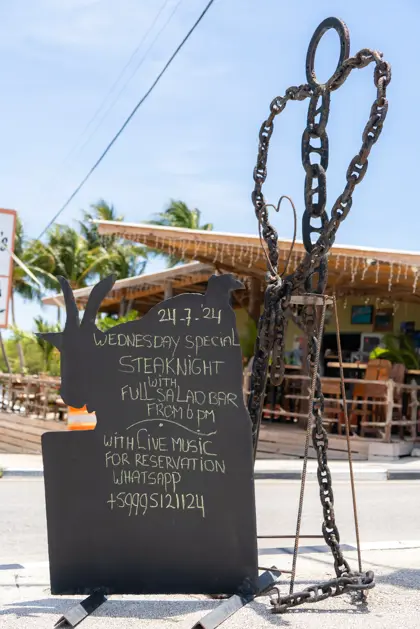 24-7-24
WEDNESDAY SPECIAL
STEAKNIGHT
WITH
FULL SALADBAR
FROM 6 PM
WITH LIVE MUSIC
FOR RESERVATION
WHATSAPP
+59995121124